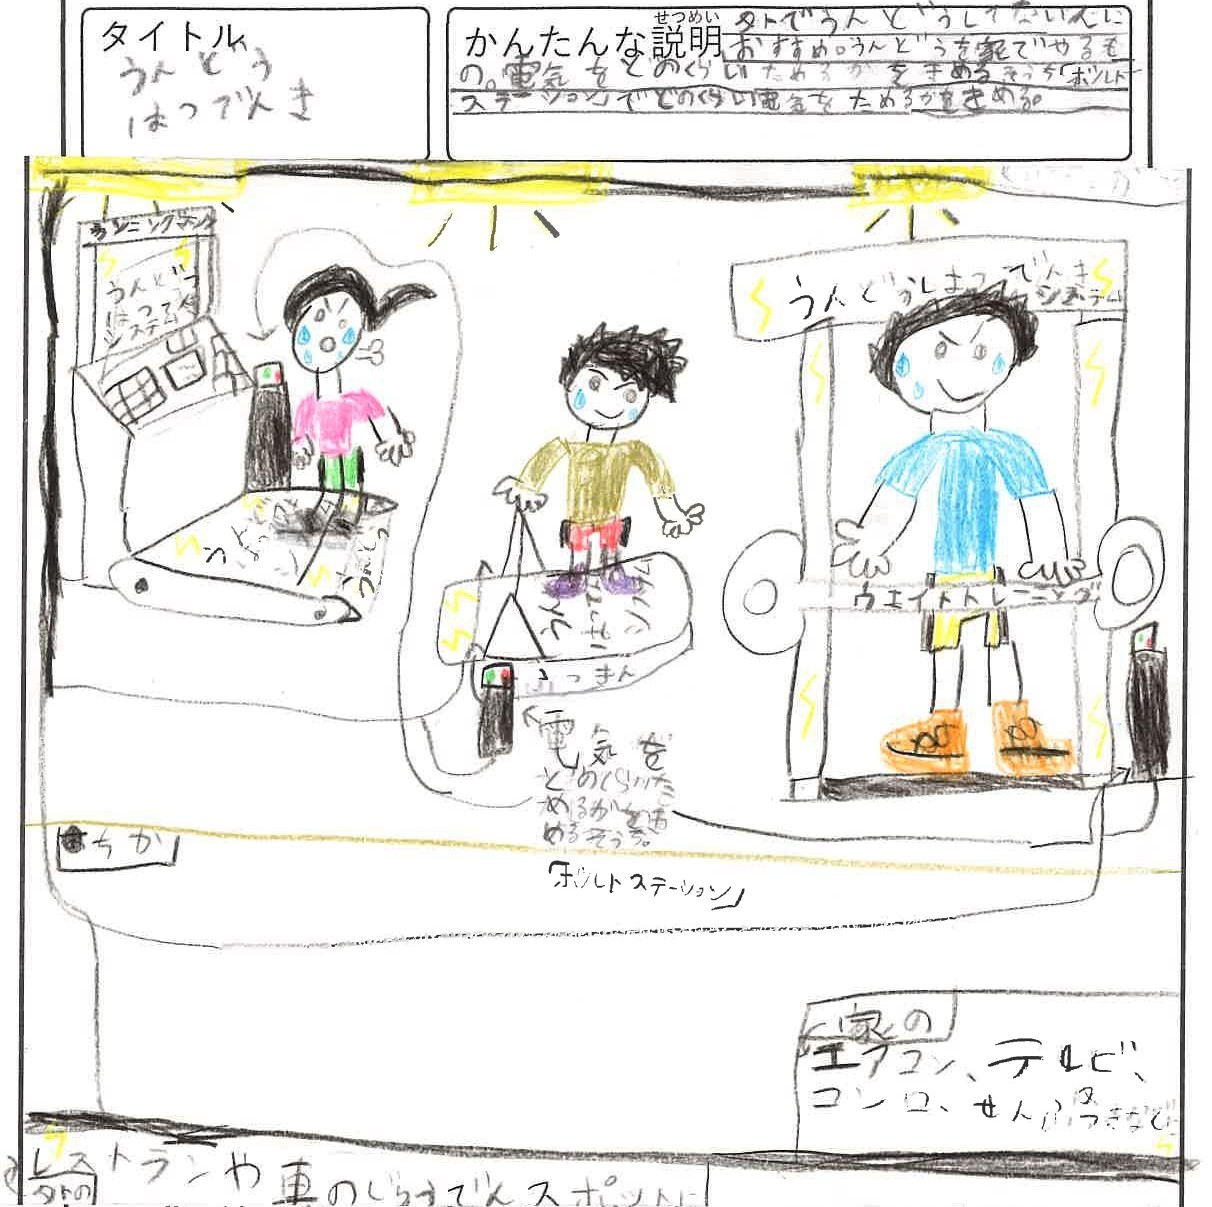 タイトル
うんどう
はつでんき
せつめい
かんたんな説明
外でうんどうしてない人に
おすすめ。うんどうを家でやるも
の。電気をどのくらいためるかをきめるそうち「ボルト
ステーション」でどのくらい電気をためるかをきめる。
ランニングマシン
うんどう
はつでん
システム
うんどうはつでんき
システム
ウエイトトレーニング
電気を
どのくらいた
めるかをき
めるそうち。
ちか
「ボルトステーション」
家の
エアコン、テレビ、
コンロ、せんぷうきなど
レストランや車のじゅうでんスポットに
外の